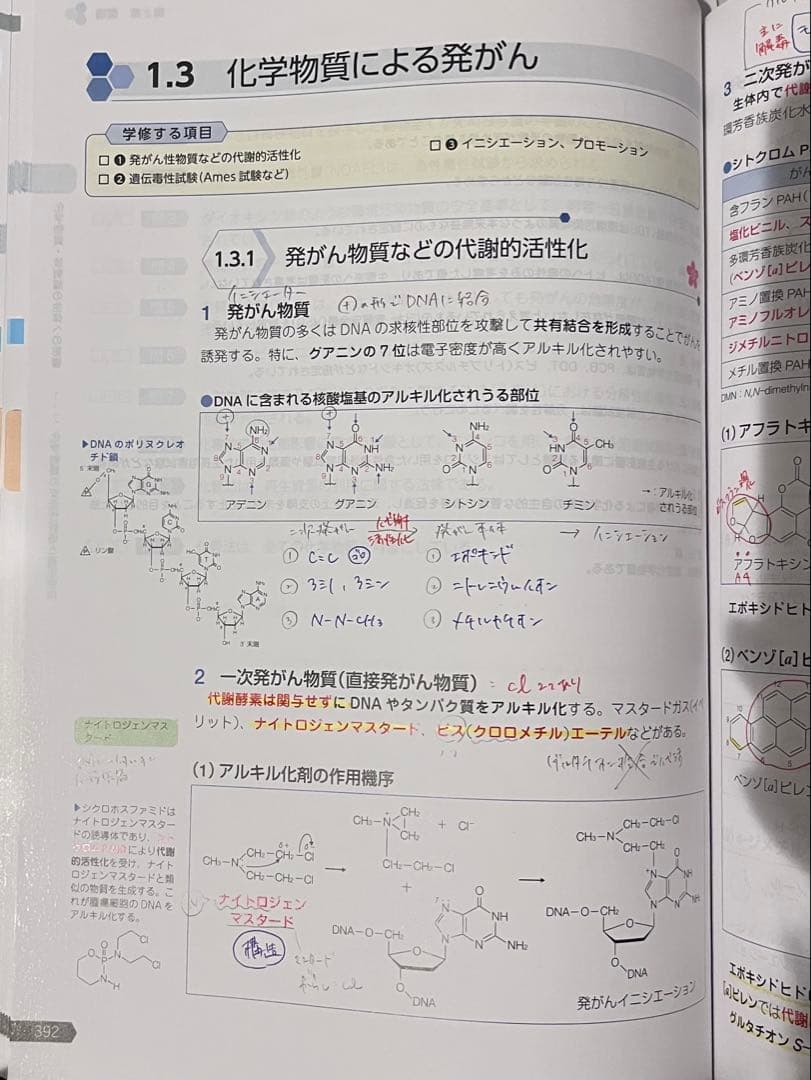 1.3 化学物質による発がん
学修する項目
□ ❶ 発がん性物質などの代謝的活性化
□ ❷ 遺伝毒性試験(Ames 試験など)
□ ❸ イニシエーション、プロモーション
1.3.1 発がん物質などの代謝的活性化
イニシエーター
⊕の形でDNAに結合
1 発がん物質
発がん物質の多くは DNA の求核性部位を攻撃して共有結合を形成することでがんを
誘発する。特に、グアニンの 7 位は電子密度が高くアルキル化されやすい。
●DNA に含まれる核酸塩基のアルキル化されうる部位
アデニン
グアニン
シトシン
チミン
→：アルキル化
されうる部位
▶DNA のポリヌクレオ
チド鎖
5' 末端
リン酸
3' 末端
二次発がん
代謝的
活性化
→ イニシエーション
① C=C
① エポキシド
② ニトレニウムイオン
③ N-N-CH3
③ メチルカチオン
2 一次発がん物質(直接発がん物質)
：Cl 2つあり
代謝酵素は関与せずに DNA やタンパク質をアルキル化する。マスタードガス(イペ
リット)、ナイトロジェンマスタード、ビス(クロロメチル)エーテルなどがある。
ナイトロジェンマス
タード
(1) アルキル化剤の作用機序
▶シクロホスファミドは
ナイトロジェンマスター
ドの誘導体であり、
により代謝
的活性化を受け、ナイト
ロジェンマスタードと類
似の物質を生成する。こ
れが腫瘍細胞の DNA を
アルキル化する。
CH₃—N
CH₂—CH₂—Cl
CH₂—CH₂—Cl
ナイトロジェン
マスタード
構造
CH₃—N
CH₂
CH₂
+ Cl⁻
CH₂—CH₂—Cl
+
DNA—O—CH₂
O
NH
NH₂
O—DNA
CH₂—CH₂—Cl
CH₃—N
CH₂—CH₂
DNA—O—CH₂
O—DNA
発がんイニシエーション
392
主に
解毒
3 二次発が
生体内で代謝
環芳香族炭化水
●シトクロム P
がん
含フラン PAH(
塩化ビニル、ス
多環芳香族炭化
(ベンゾ[a]ピレ
アミノ置換 PAH
アミノフルオレ
ジメチルニトロ
メチル置換 PAH
DMN：N,N-dimethylni
(1) アフラトキ
アフラトキシン
エポキシドヒト
(2) ベンゾ[a]ピ
ベンゾ[a]ピレン
エポキシドヒド
[a]ピレンでは代謝
グルタチオン S-